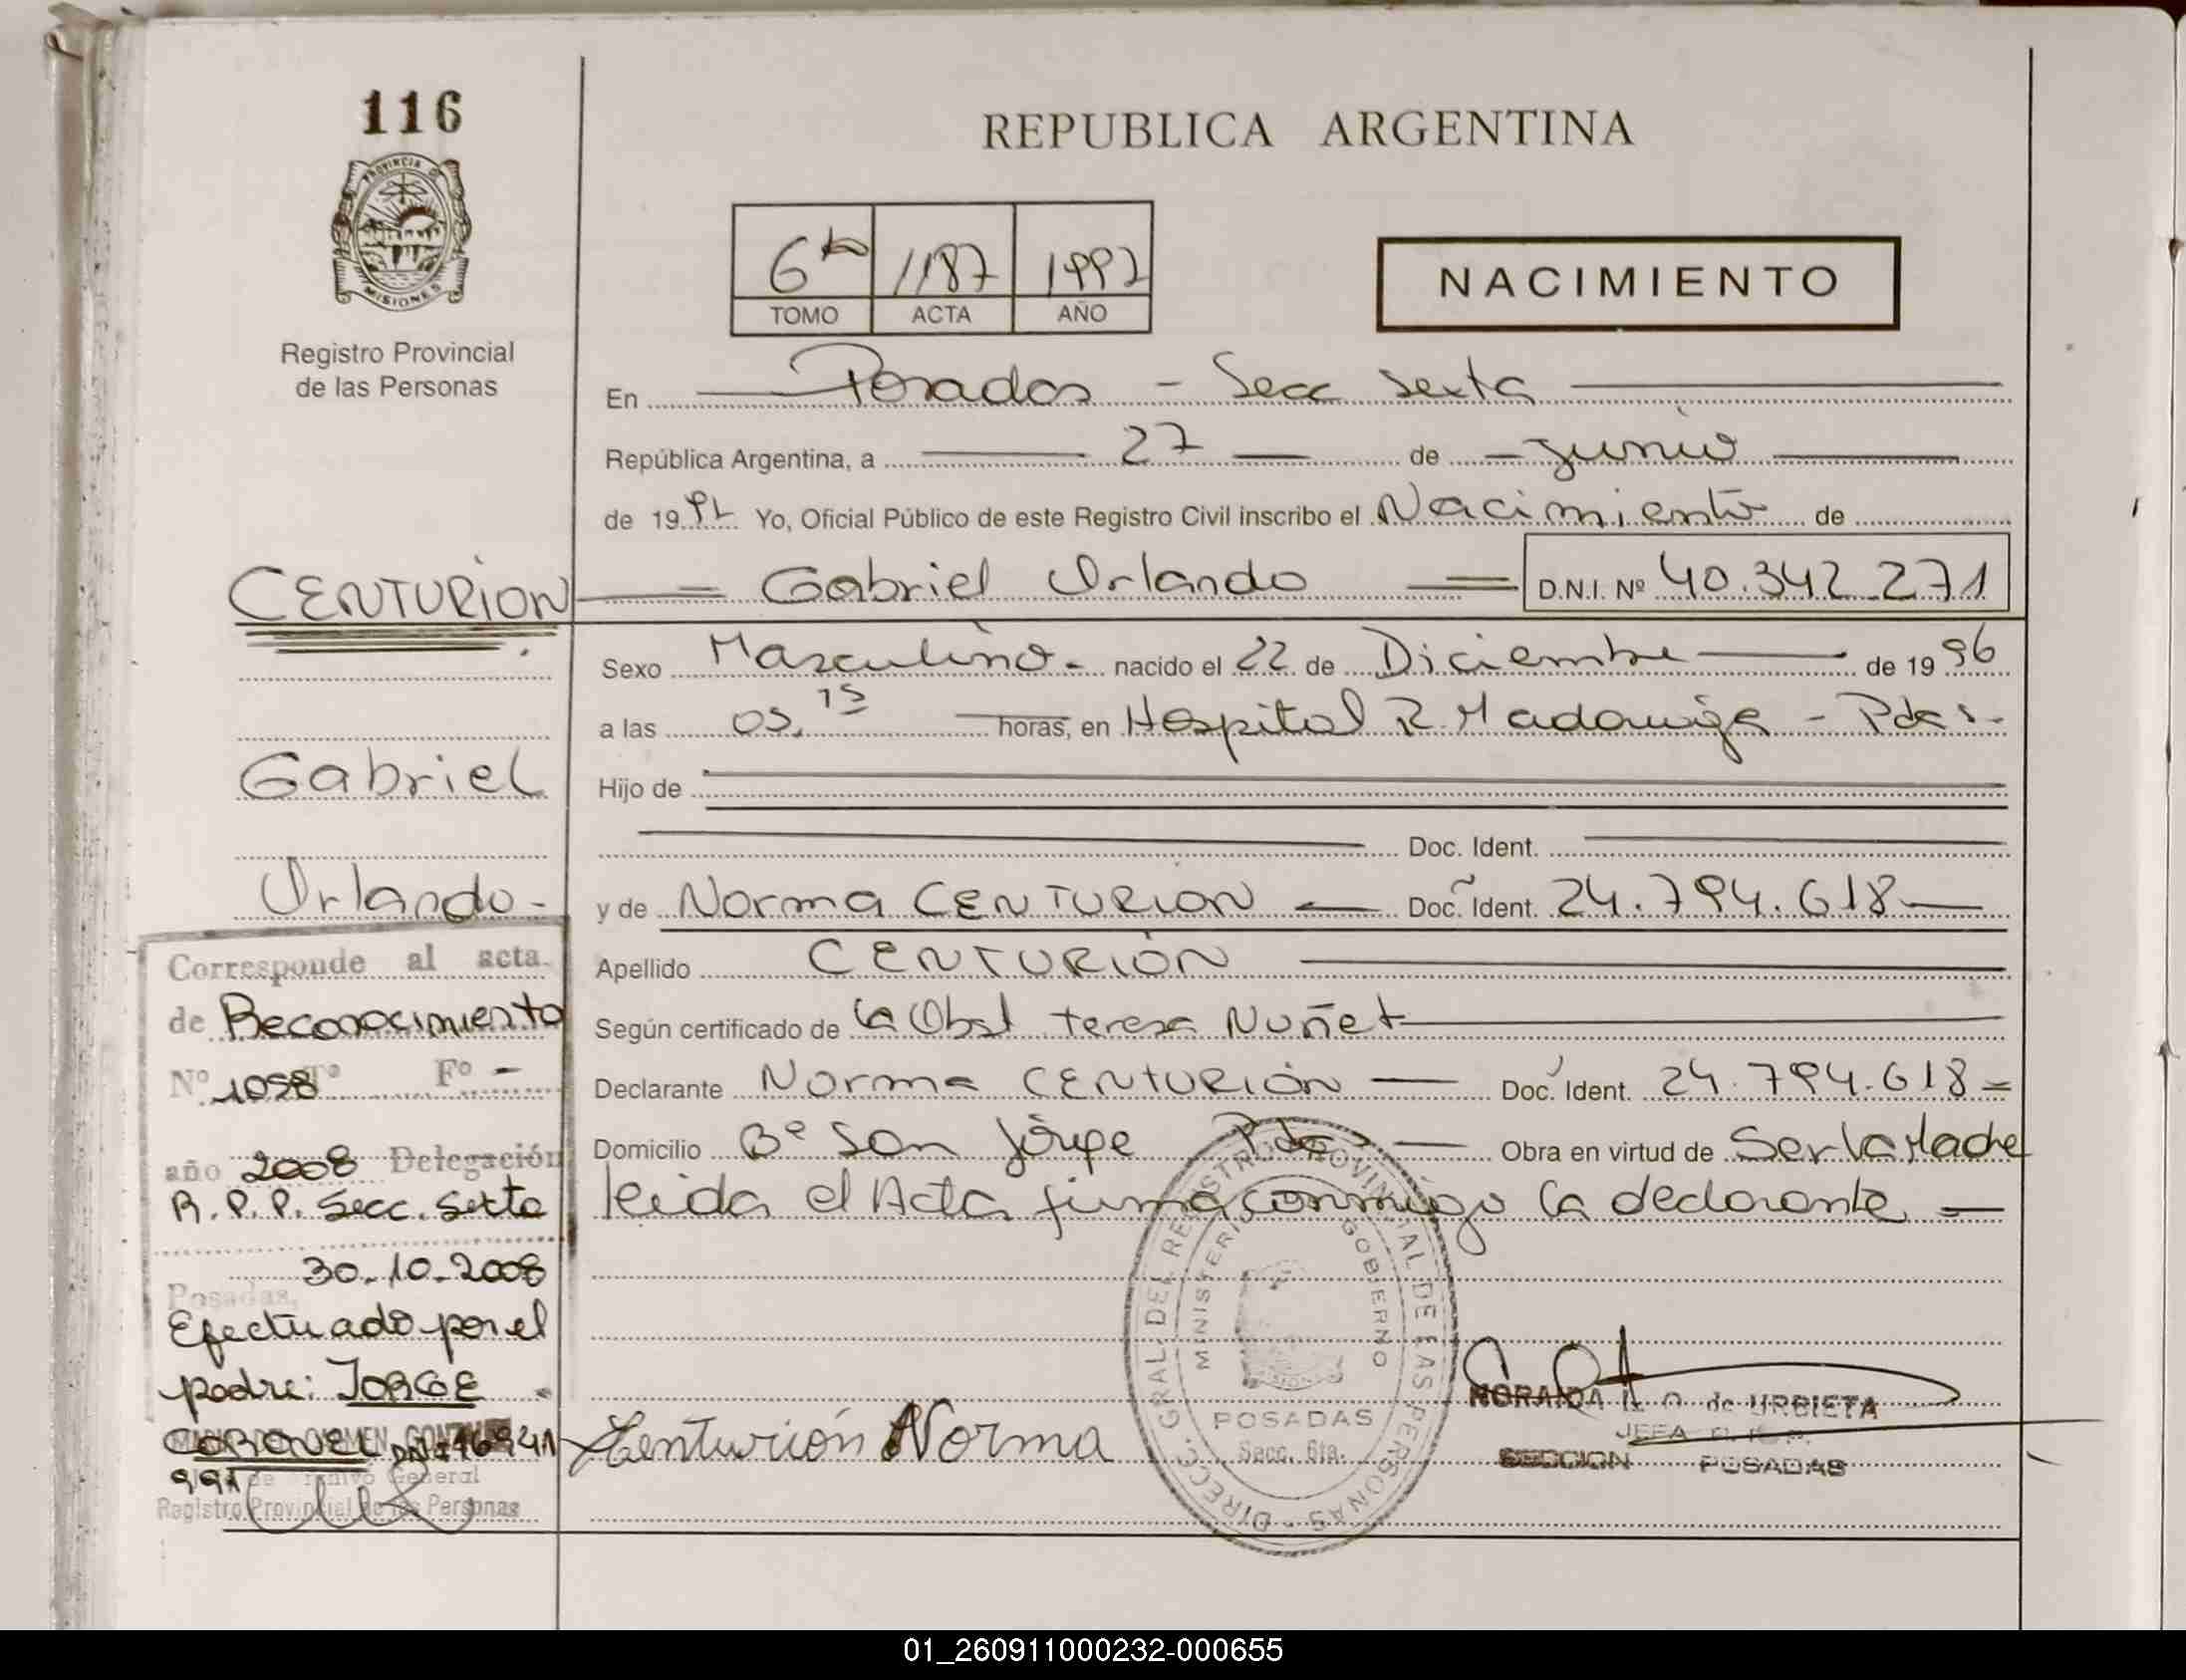 116
PROVINCIA DE
MISIONES
Registro Provincial
de las Personas
REPUBLICA ARGENTINA
6ta 1187 1997
TOMO ACTA AÑO
NACIMIENTO
En Posadas - Secc Sexta
República Argentina, a 27 de Junio
de 1997 Yo, Oficial Público de este Registro Civil inscribo el Nacimiento de
CENTURION Gabriel Orlando D.N.I. Nº 40.342.271
Sexo Masculino - nacido el 22 de Diciembre de 1996
a las 03,15 horas, en Hospital R. Madariaga - Pdas -
Gabriel
Hijo de
Doc. Ident.
Orlando -
y de Norma CENTURION Doc. Ident. 24.794.618
Apellido CENTURIÓN
Según certificado de la Obst Teresa Nuñez
Declarante Norma CENTURIÓN Doc. Ident. 24.794.618
Domicilio Bº San Jorge Pdas Obra en virtud de Ser la Madre
leida el Acta firma conmigo la declarante
Corresponde al acta
de Reconocimiento
Nº 1058 Tº Fº -
año 2008 Delegación
R.P.P. Secc. Sexta
30-10-2008
Posadas,
Efectuado por el
padre: JORGE
CORONEL DNI
991
General
Registro Provincial de las Personas
Centurión Norma
DIRECC. GRAL. DEL REGISTRO PROVINCIAL DE LAS PERSONAS
MINISTERIO GOBIERNO
MISIONES
POSADAS
Secc. 6ta.
NORAIDA L. O. de URBIETA
JEFA
SECCION POSADAS
01_260911000232-000655